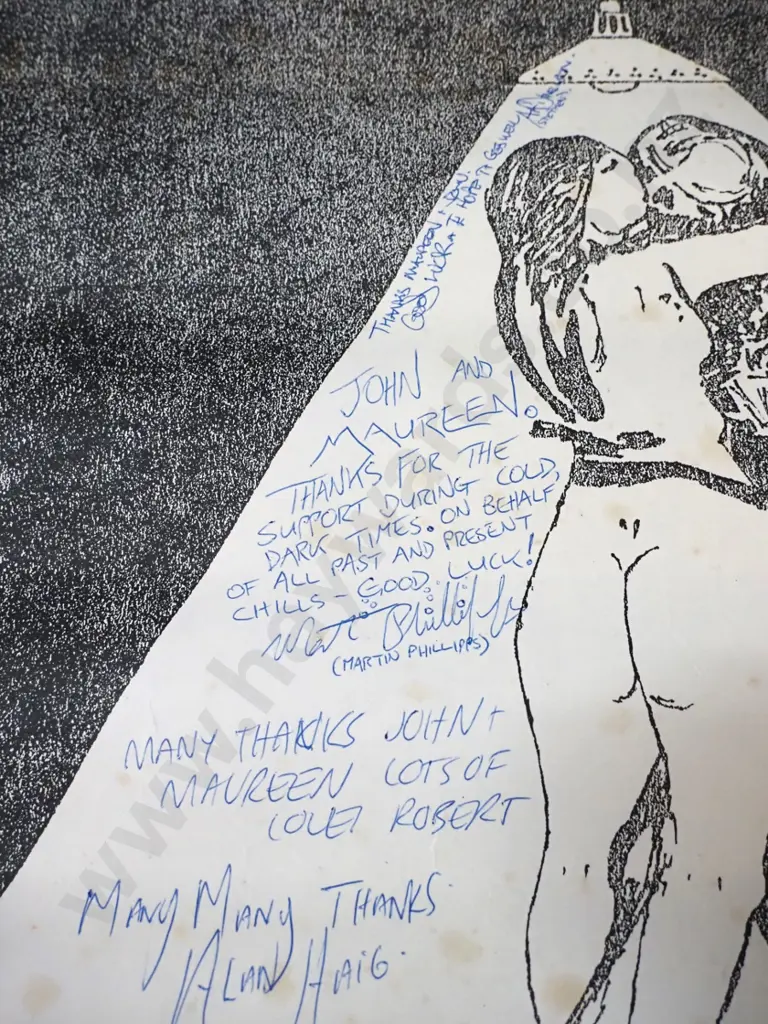 THANKS MAUREEN + JOHN.
GOOD LUCK I HOPE
JOHN AND
MAUREEN.
THANKS FOR THE
SUPPORT DURING COLD,
DARK TIMES. ON BEHALF
OF ALL PAST AND PRESENT
CHILLS - GOOD LUCK!
Martin Phillipps
(MARTIN PHILLIPPS)
MANY THANKS JOHN +
MAUREEN LOTS OF
LOVE, ROBERT
MANY MANY THANKS
ALAN HAIG.